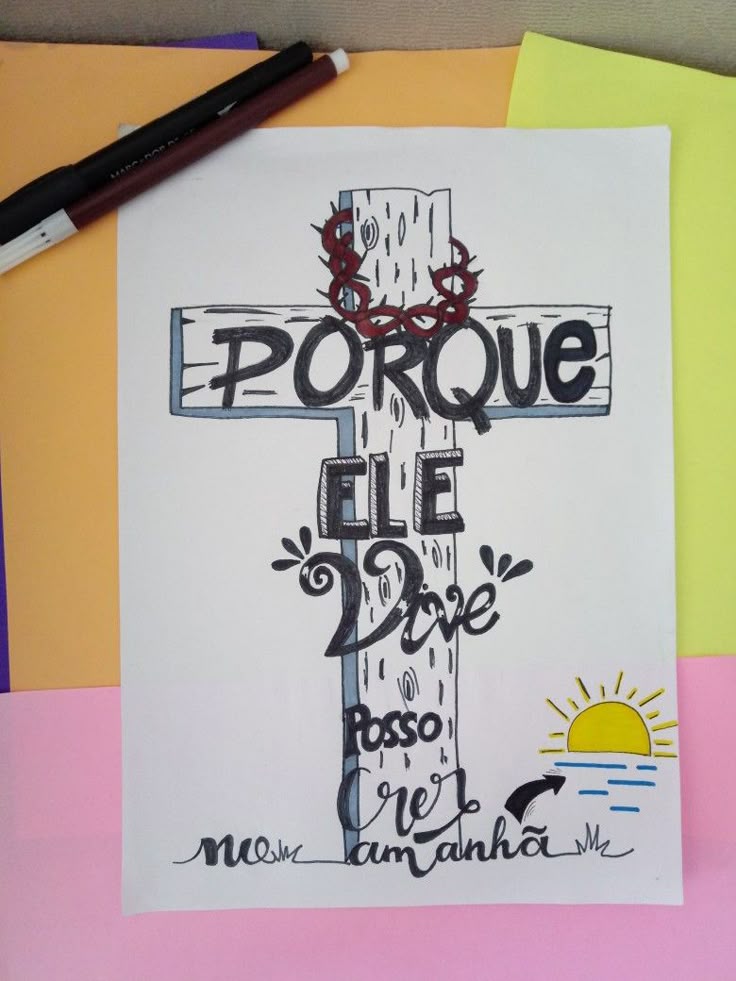 MARCADOR
PORQUE
ELE
Vive
Posso
Crer
no amanhã